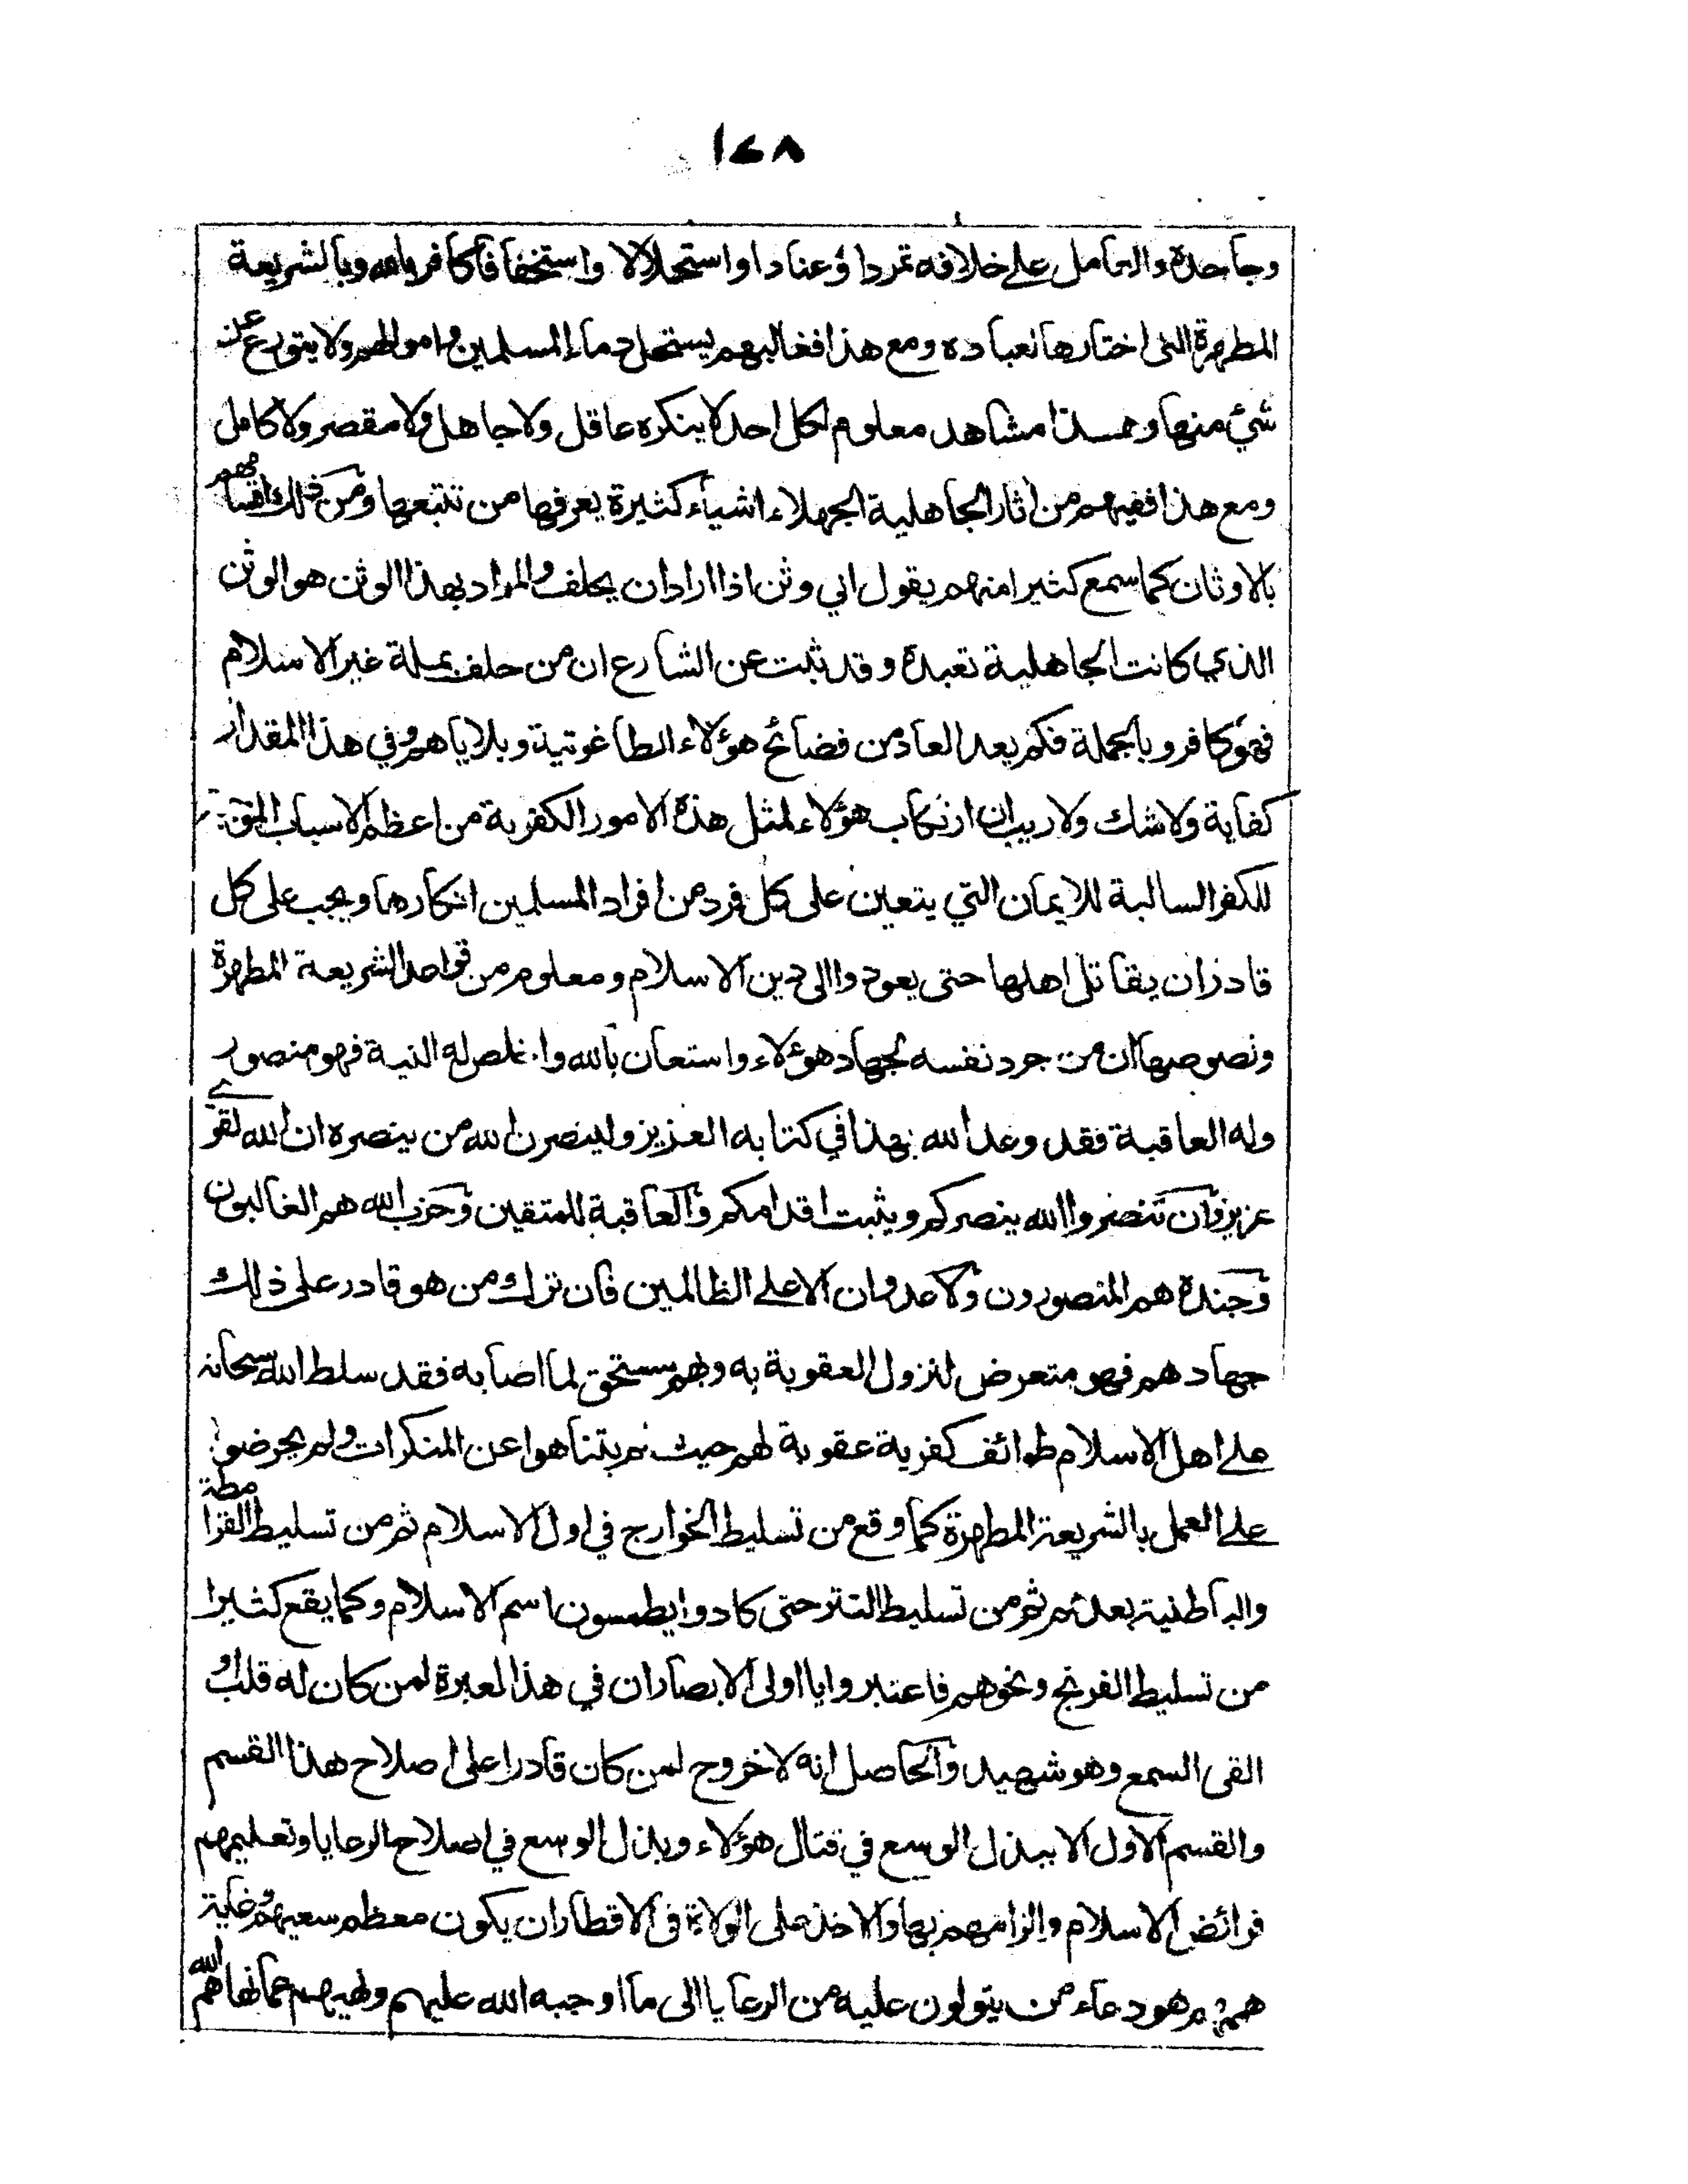 ١٤٨
وجاحدة والعامل على خلافه تمردا وعنادا واستحلالا واستخفافا كافر بالله وبالشريعة
المطهرة التي اختارها لعباده ومع هذا فغالبهم يستحل دماء المسلمين واموالهم ولا يتورع عن
شيء منها وهذا مشاهد معلوم لكل احد لا ينكره عاقل ولا جاهل ولا مقصر ولا كامل
ومع هذا ففيهم من اثار الجاهلية الجهلاء اشياء كثيرة يعرفها من تتبعها ومن ذلك اقسامهم
بالاوثان كما سمع كثيرا منهم يقول اي وثن اذا اراد ان يحلف والمراد بهذا الوثن هو الوثن
الذي كانت الجاهلية تعبدة وقد ثبت عن الشارع ان من حلف بملة غير الاسلام
فهو كافر وبالجملة فكم يعد العاد من فضائح هؤلاء الطاغوتية وبلاياهم وفي هذا المقدار
كفاية ولا شك ولا ريب ان ارتكاب هؤلاء لمثل هذة الامور الكفرية من اعظم الاسباب الموجبة
للكفر السالبة للايمان التي يتعين على كل فرد من افراد المسلمين انكارها ويجب على كل
قادر ان يقاتل اهلها حتى يعودوا الى دين الاسلام ومعلوم من قواعد الشريعة المطهرة
ونصوصها ان من جرد نفسه لجهاد هؤلاء واستعان بالله واخلص له النية فهو منصور
وله العاقبة فقد وعد الله بهذا في كتابه العزيز ولينصرن الله من ينصره ان الله لقوي
عزيز وان تنصروا الله ينصركم ويثبت اقدامكم والعاقبة للمتقين وحزب الله هم الغالبون
وجندة هم المنصورون ولا عدوان الا على الظالمين فان ترك من هو قادر على ذلك
جهادهم فهو متعرض لنزول العقوبة به وبهم مستحق لما اصابه فقد سلط الله سبحانه
على اهل الاسلام طوائف كفرية عقوبة لهم حيث لم يتناهوا عن المنكرات ولم يحرضوا
على العمل بالشريعة المطهرة كما وقع من تسليط الخوارج في اول الاسلام ثم من تسليط القرامطة
والباطنية بعدهم ثم من تسليط التتر حتى كادوا يطمسون اسم الاسلام وكما يقع كثيرا
من تسليط الفرنج ونحوهم فاعتبروا يا اولى الابصار ان في هذا لعبرة لمن كان له قلب او
القى السمع وهو شهيد والحاصل انه لا خروج لمن كان قادرا على اصلاح هذا القسم
والقسم الاول الا ببذل الوسع في قتال هؤلاء وبذل الوسع في اصلاح الرعايا وتعليمهم
فرائض الاسلام والزامهم بها والاخذ على الولاة في الاقطار ان يكون معظم سعيهم وغاية
همتهم هو دعاء من يتولون عليه من الرعايا الى ما اوجبه الله عليهم ونهيهم عما نهاهم الله